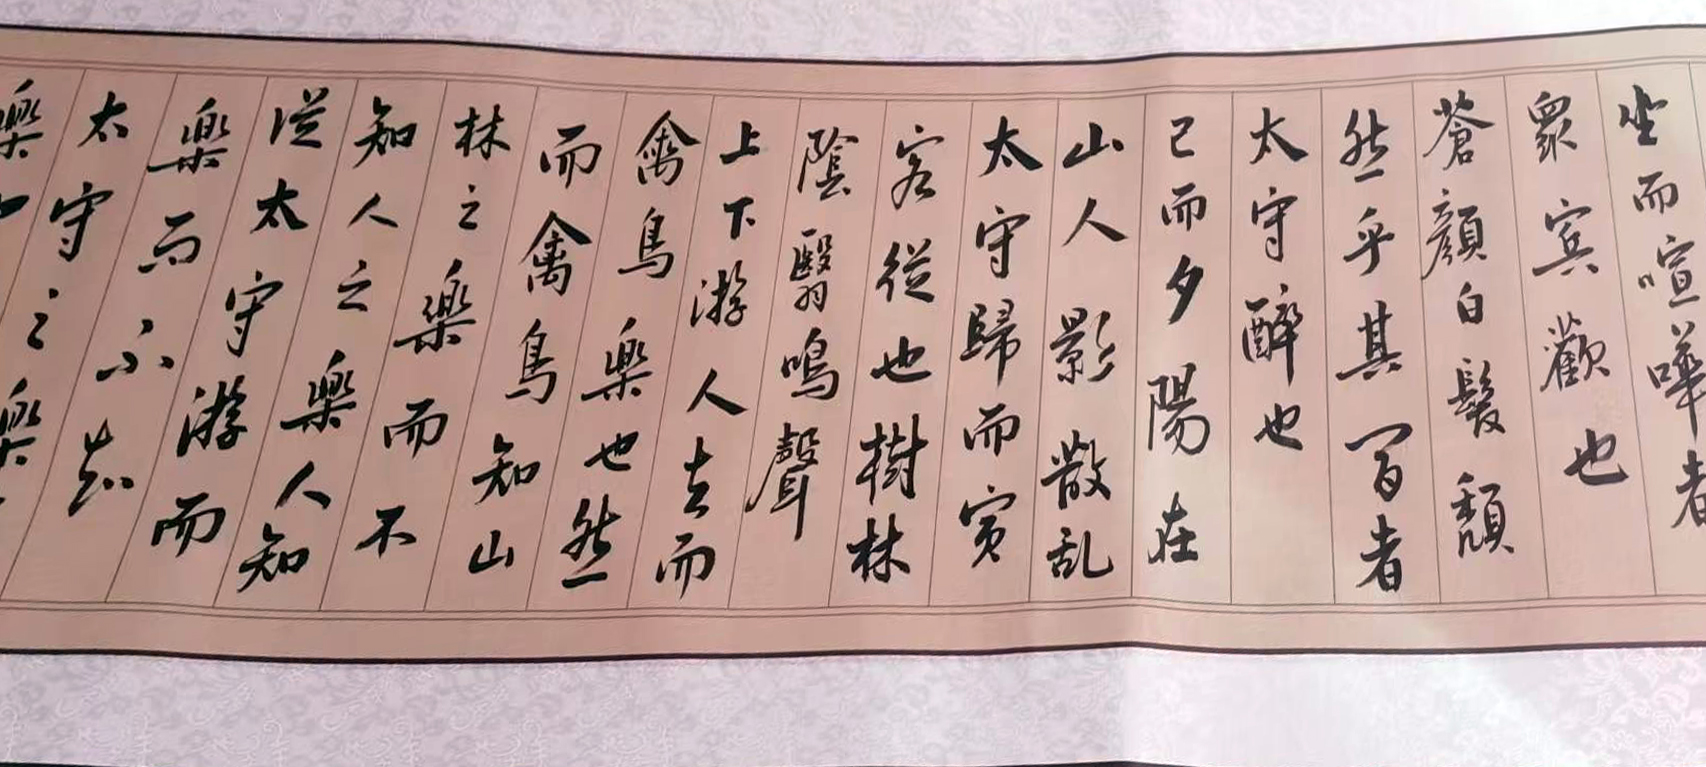 坐而喧嘩者
眾賓歡也
蒼顏白髮頹
然乎其間者
太守醉也
已而夕陽在
山人影散乱
太守歸而賓
客從也樹林
陰翳鳴聲
上下游人去而
禽鳥樂也然
而禽鳥知山
林之樂而不
知人之樂人知
從太守游而
樂而不知
太守之樂
樂